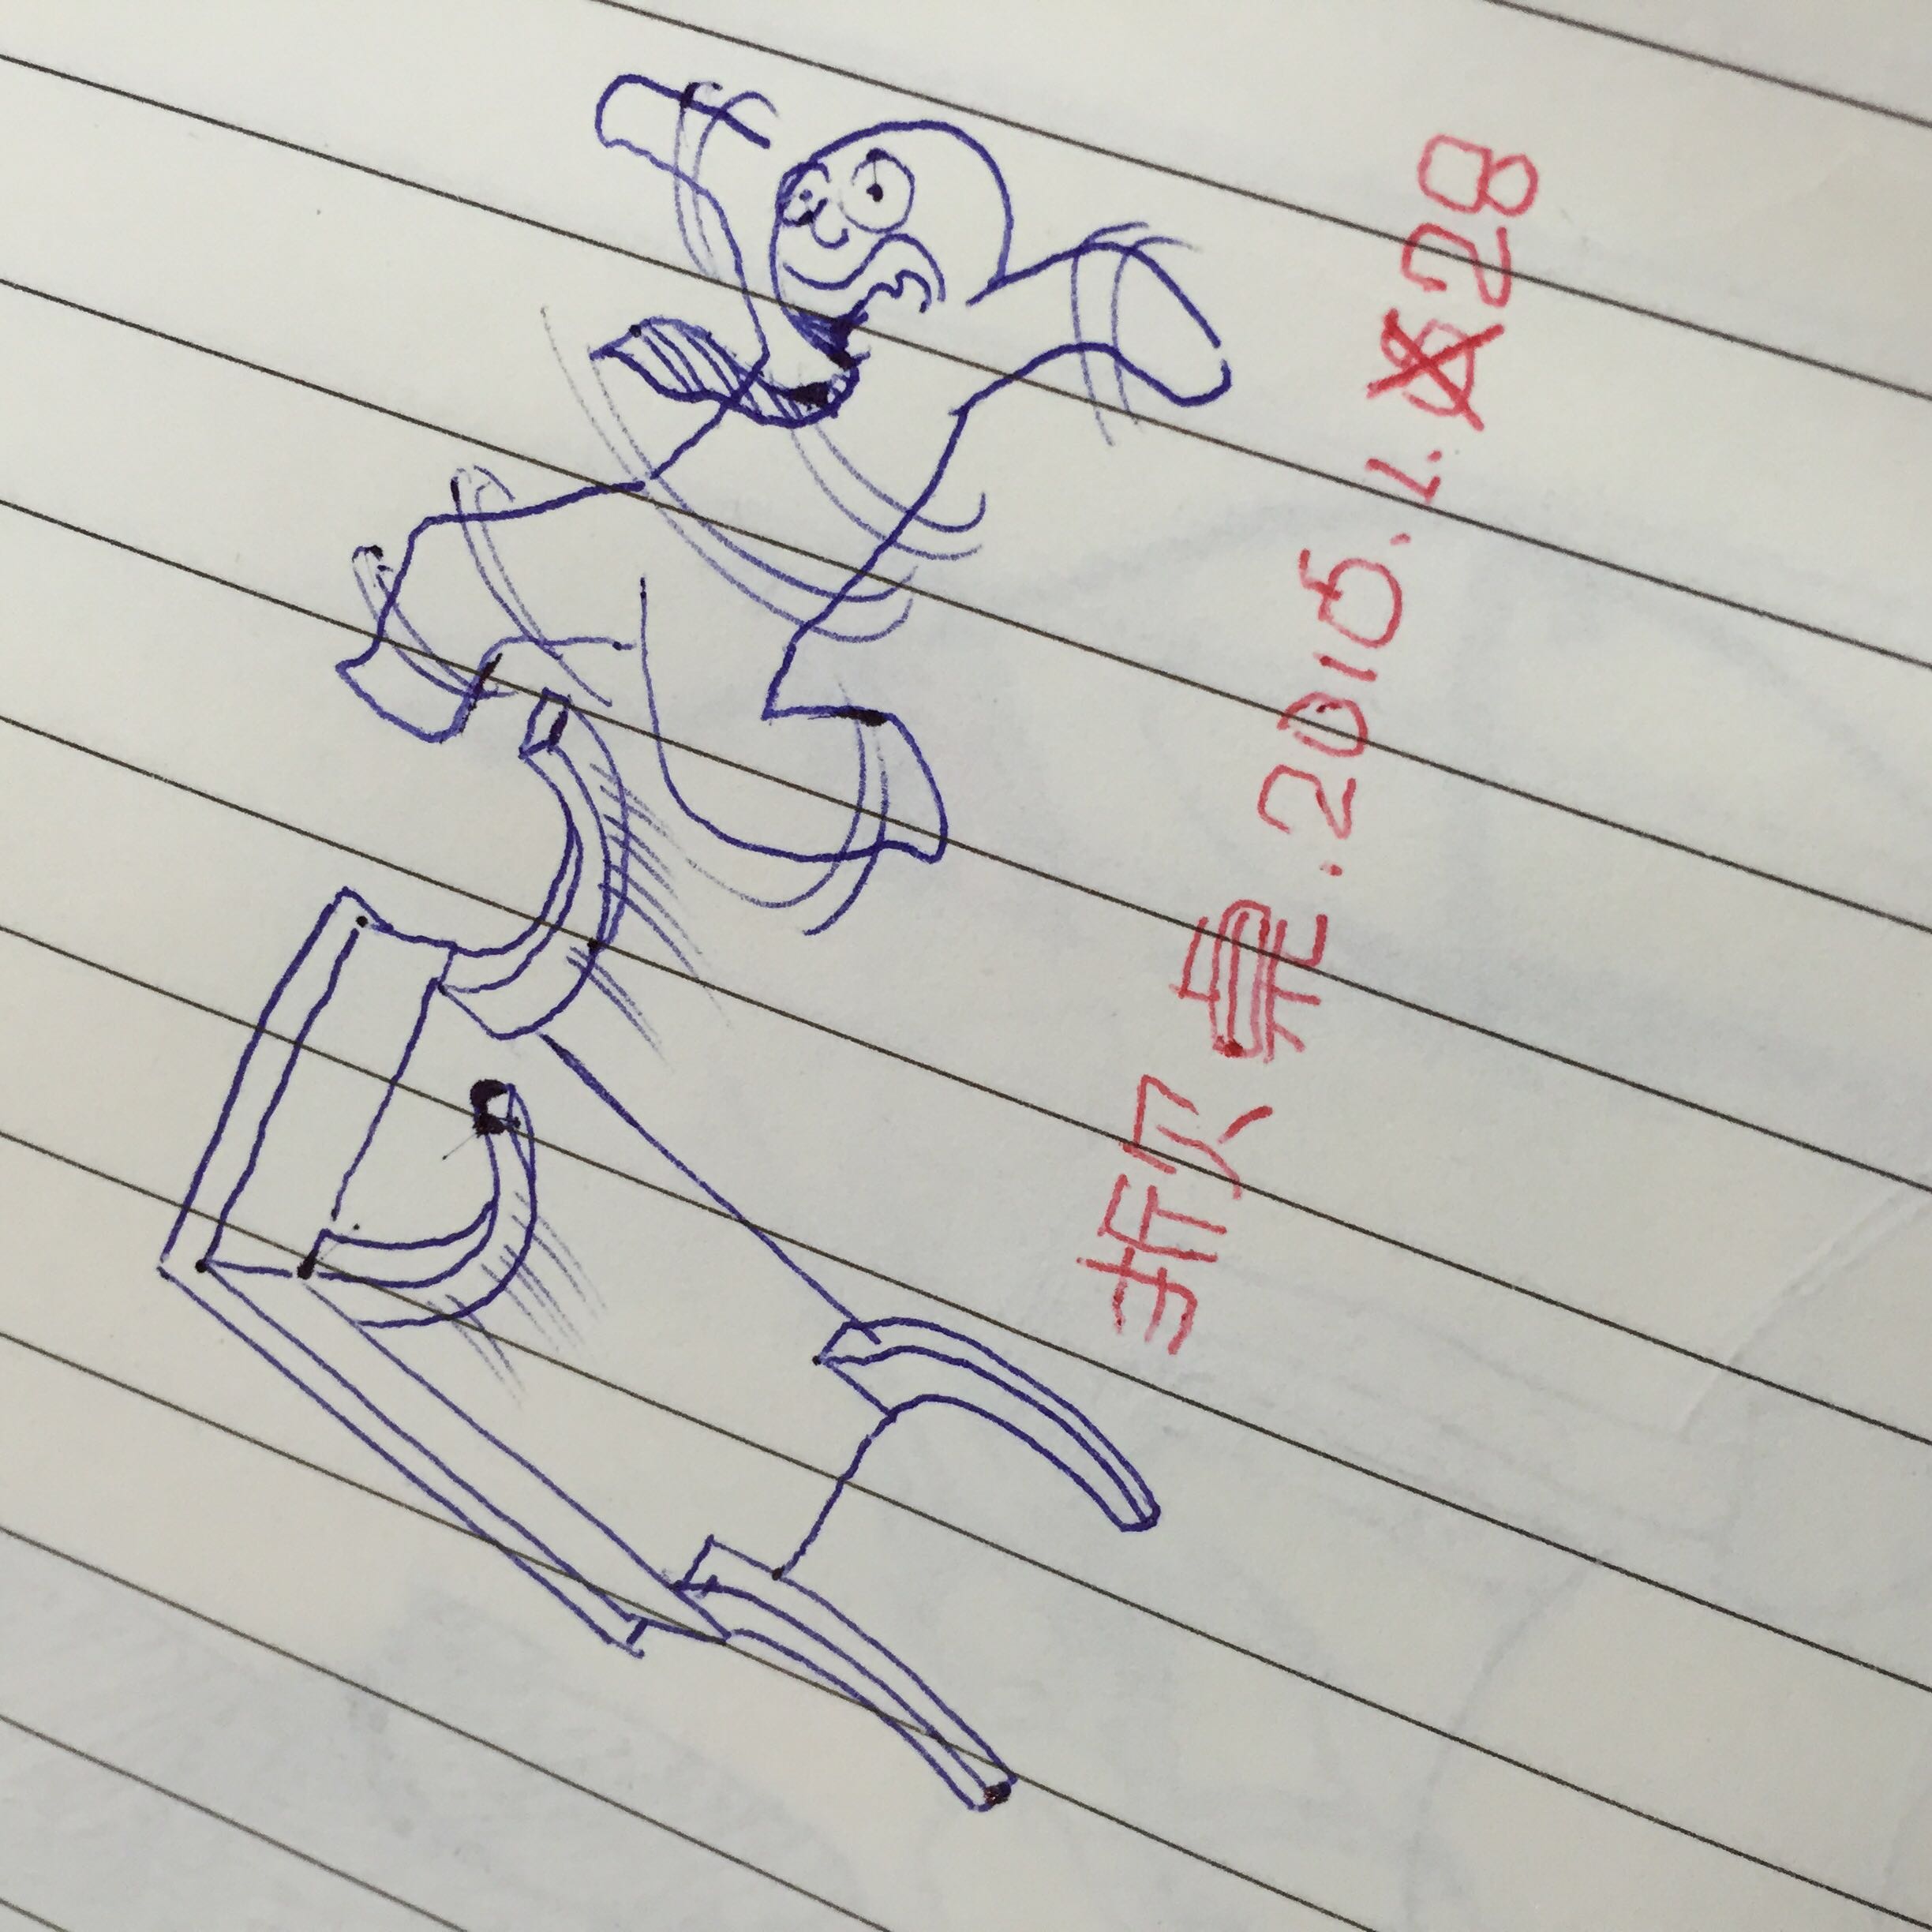 掀桌.2016.1.28